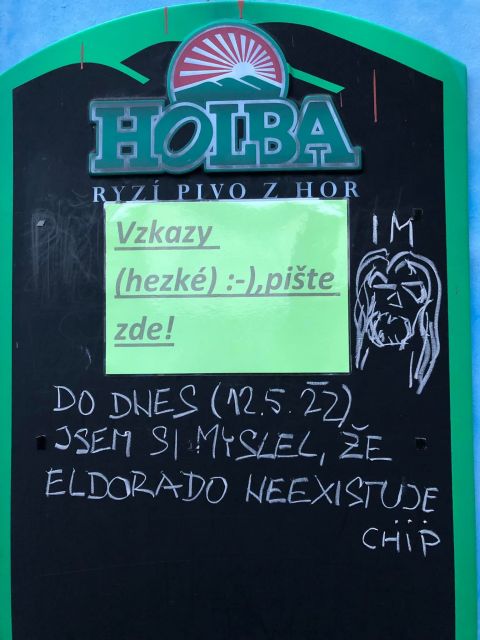 HOLBA
RYZÍ PIVO Z HOR
Vzkazy
(hezké) :-),pište
zde!
IM
DO DNES (12.5.22)
JSEM SI MYSLEL, ŽE
ELDORADO NEEXISTUJE
CHIP